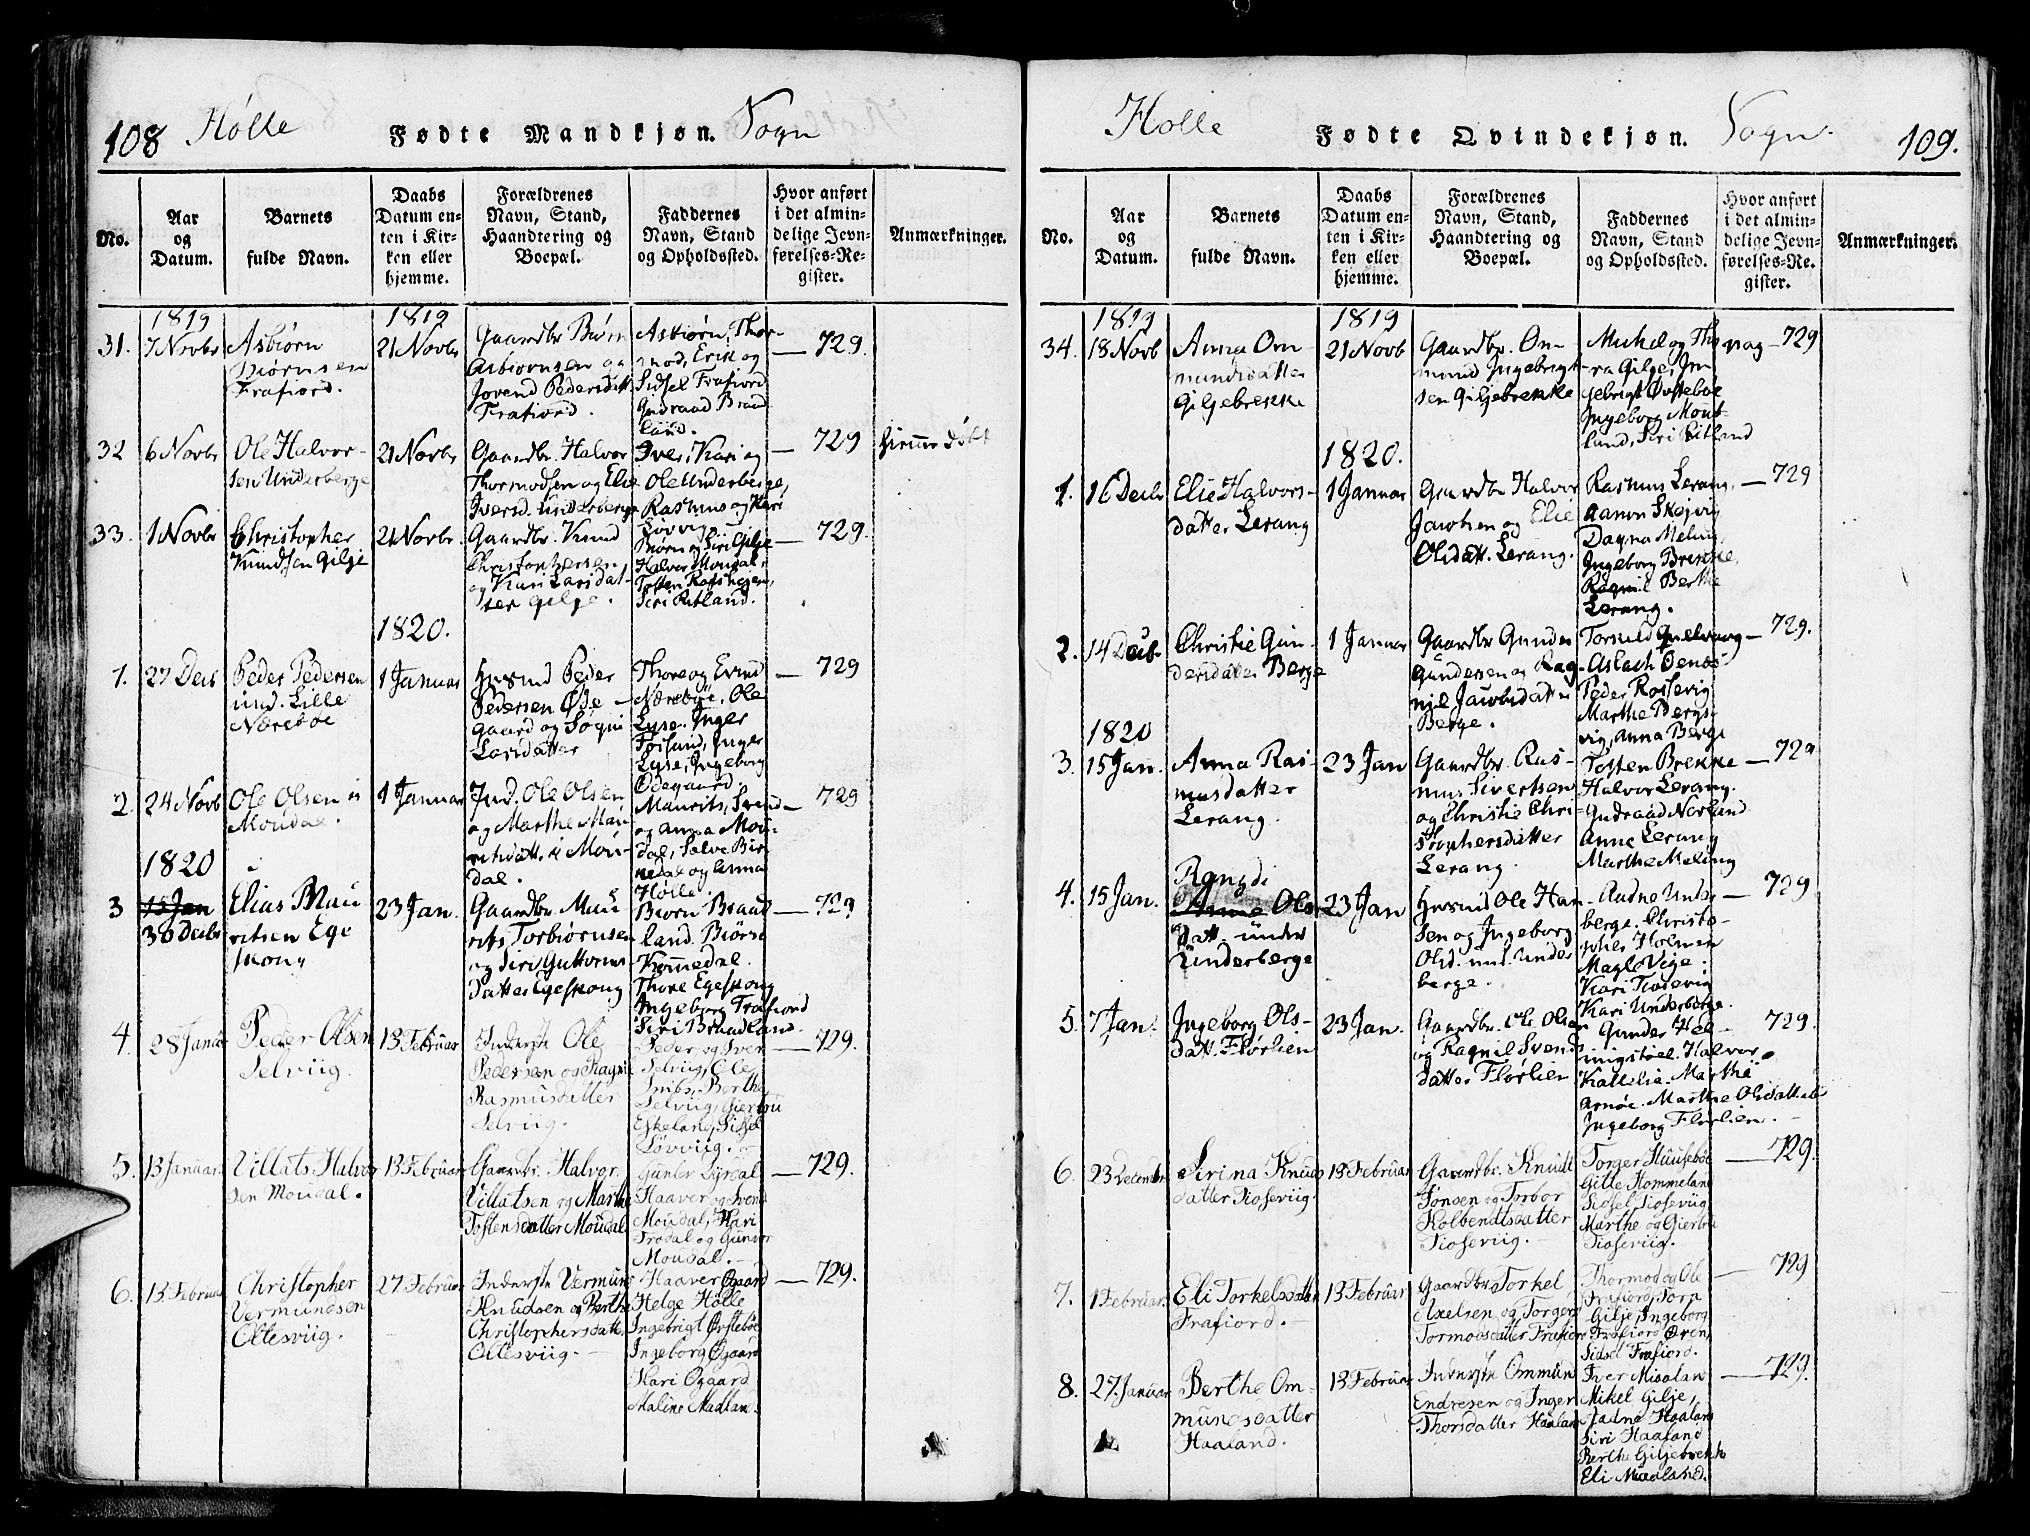 108 Hølle Fødte Mandkjøn. Sogn
No.
Aar og Datum.
Barnets fulde Navn.
Daabs Datum enten i Kirken eller hjemme.
Forældrenes Navn, Stand, Haandtering og Boepæl.
Faddernes Navn, Stand og Opholdssted.
Hvor anført i det almindelige Jevnførelses-Register.
Anmærkninger.
1819
1819
31. 7 Novbr
Asbiørn
Biørnsen
Frafiord.
21 Novbr
Gaardbr. Biørn
Asbiørnsen og
Jorend Pedersdatt
Frafiord.
Asbiørn, Thor-
mod, Erik og
Sidsel Frafiord
Gudraad Braad-
land.
— 729.
32 6 Novbr
Ole Halvor-
sen Underberge
21 Novbr
Gaardbr. Halvor
Thormodsen og Elie
Iversd. Underberge
Iver, Kari og
Ole Underberge,
Rasmus og Kari
Løvvig
— 729
33. 1 Novbr
Christopher
Knudsen Gilje
21 Novbr.
Gaardbr. Knud
Christophersen,
og Kari Larsdat-
ter Gilje.
Biørn og Siri Gilje
Halvor Moudal,
Tosten
Siri Ritland.
— 729.
1820.
1. 27 Decb
Peder Pedersen
und. Lille
Nærebøe
1 Januar
Husmd Peder
Pedersen Øde-
gaard og Søgni
Larsdatter
Thore og Evind
Nærebøe, Ole
Lyse, Inger
Fosund, Inger
Lyse, Ingeborg
Ødegaard.
— 729
2. 24 Novb
Ole Olsen
Moudal.
1 Januar
Ind. Ole Olsen
og Marthe Mau-
ritsdatt. i Mou-
dal.
Maurits, Svend
og Anna Mou-
dal, Salve Bir-
kedal og Anna
Hølle.
— 729
1820
3 15 Jan
30 Decbr
Elias Mau
ritsen Ege
skong
23 Jan.
Gaardbr. Mau
rits Torbiørnsen
og Siri Guttorms-
datter Egeskong
Biørn Braad-
land. Biørn
Kommedal.
Thore Egeskong
Ingeborg Frafiord
Siri Braadland.
— 729
4. 28 Januar
Peder Olsen
Selviig.
13 Februar
Inderste Ole
Pedersen og Ragnil
Rasmusdatter
Selviig.
Peder og Iver
Selviig, Ole
Berthe
Selviig, Giertru
Eskeland, Sidsel
Løvviig.
— 729.
5. 13 Januar.
Villats Halvor
sen Moudal.
13 Februar
Gaardbr. Halvor
Villatsen og Marthe
Tostensdatter Moudal
Gunler Lyrdal
Haaver og Svend
Moudal, Kari
Frodal og Gunvor
Moudal.
— 729.
6. 13 Februar
Christopher
Vermundsen
Oltesviig.
27 Februar
Inderste Vermund
Knudsen og Berthe
Christophersdatt.
Oltesviig.
Haaver Øgaard
Helge Hølle
Ingebrigt Øvstebøe
Ingeborg Øgaard
Kari Øgaard
Maline Madland
— 729.
Hølle Fødte Qvindekjøn. Sogn. 109.
No.
Aar og Datum.
Barnets fulde Navn.
Daabs Datum enten i Kirken eller hjemme.
Forældrenes Navn, Stand, Haandtering og Boepæl.
Faddernes Navn, Stand og Opholdssted.
Hvor anført i det almindelige Jevnførelses-Register.
Anmærkninger.
1819
1819
34. 18 Novb
Anna Om-
mundsdatter
Giljebrekke
21 Novb
Gaardbr. Om-
mund Ingebrigt-
sen Giljebrekke
Michel og Tho-
ra Gilje, In-
gebrigt Øvstebøe
Ingeborg Mout-
land, Siri Ritland
pag - 729
1820.
1. 16 Decbr
Elie Halvors-
datter Lerang
1 Januar
Gaardbr Halvor
Jacobsen og Elie
Olsdatt. Lerang.
Rasmus Lerang,
Aanon Skejvig
Dagna Meling
Ingeborg Brekke,
Ragnil Berthe
Lerang.
— 729
2. 14 Decb.
Christie Gun-
dersdatter Berge
1 Januar
Gaardbr Gunder
Gundersen og Rag-
nil Jacobsdatter
Berge.
Torkild
Aslach Øenøe
Peder Rossevig
Marthe Bergs-
vig, Anna Berge
— 729.
1820
3. 15 Jan.
Anna Ras-
musdatter
Lerang.
23 Jan
Gaardbr. Ras-
mus Sivertsen
og Christie Chri-
stophersdatter
Lerang.
Tosten Brekke
Halvor Lerang.
Gudraad Norland
Anne Lerang
Marthe Meling
— 729
4. 15 Jan.
Rangdi
Anne Ols-
datt. under
Underberge
23 Jan
Husmd Ole Han-
sen og Ingeborg
Olsd. und. Under
berge.
Audne Under
berge. Christo-
pher Holmen
Maglo Vige.
Kari Tiosevig
Kari Underberge.
— 729
5. 7 Jan.
Ingeborg Ols-
datt. Flørlien
23 Jan.
Gaardbr. Ole Olsen
og Ragnil Svends
datter Flørlien
Gunder Hel-
ningstøel. Halvor
Kallelie. Marthe
Arnøe. Marthe Olsdatt.
Ingeborg Flørlien.
— 729.
6. 23 Decembr
Sirina Knuds
datter Tioseviig.
13 Februar
Gaardbr. Knudt
Jonsen og Torbor
Kolbendtsdatter
Tioseviig.
Torger Huusebøe
Gitte Hommeland
Sidsel Tioseviig
Marthe og Giertru
Tioseviig.
— 729.
7. 1 Februar.
Eli Torkelsdatter
Frafiord.
13 Februar
Gaardbr. Torkel
Axelsen og Torger
Tormodsdatter Frafiord
Thormod og Ole
Frafiord, Torn
Gilje, Ingeborg
Frafiord Øvren,
Sidsel Frafiord.
— 729
8. 27. Januar
Berthe Om-
mundsdatter
Haaland.
13 Februar
Inderste Ommund
Endresen og Inger
Thorsdatter Haaland
Iver Maaland
Mikel Gilje,
Haaland
Siri Haaland
Berthe Giljebrekke
Eli Maaland.
— 729.